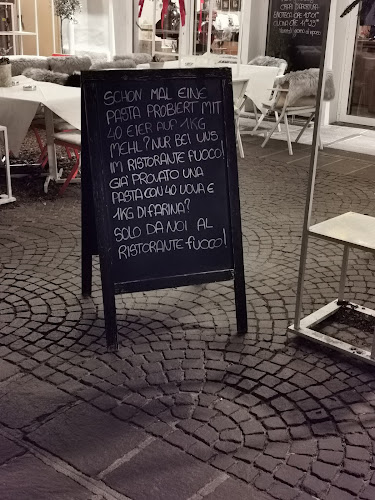 SCHON MAL EINE
PASTA PROBIERT MIT
40 EIER AUF 1KG
MEHL? NUR BEI UNS,
IM RISTORANTE FUOCO!
GIA PROVATO UNA
PASTA CON 40 UOVA E
1KG DI FARINA?
SOLO DA NOI AL
RISTORANTE FUOCO!